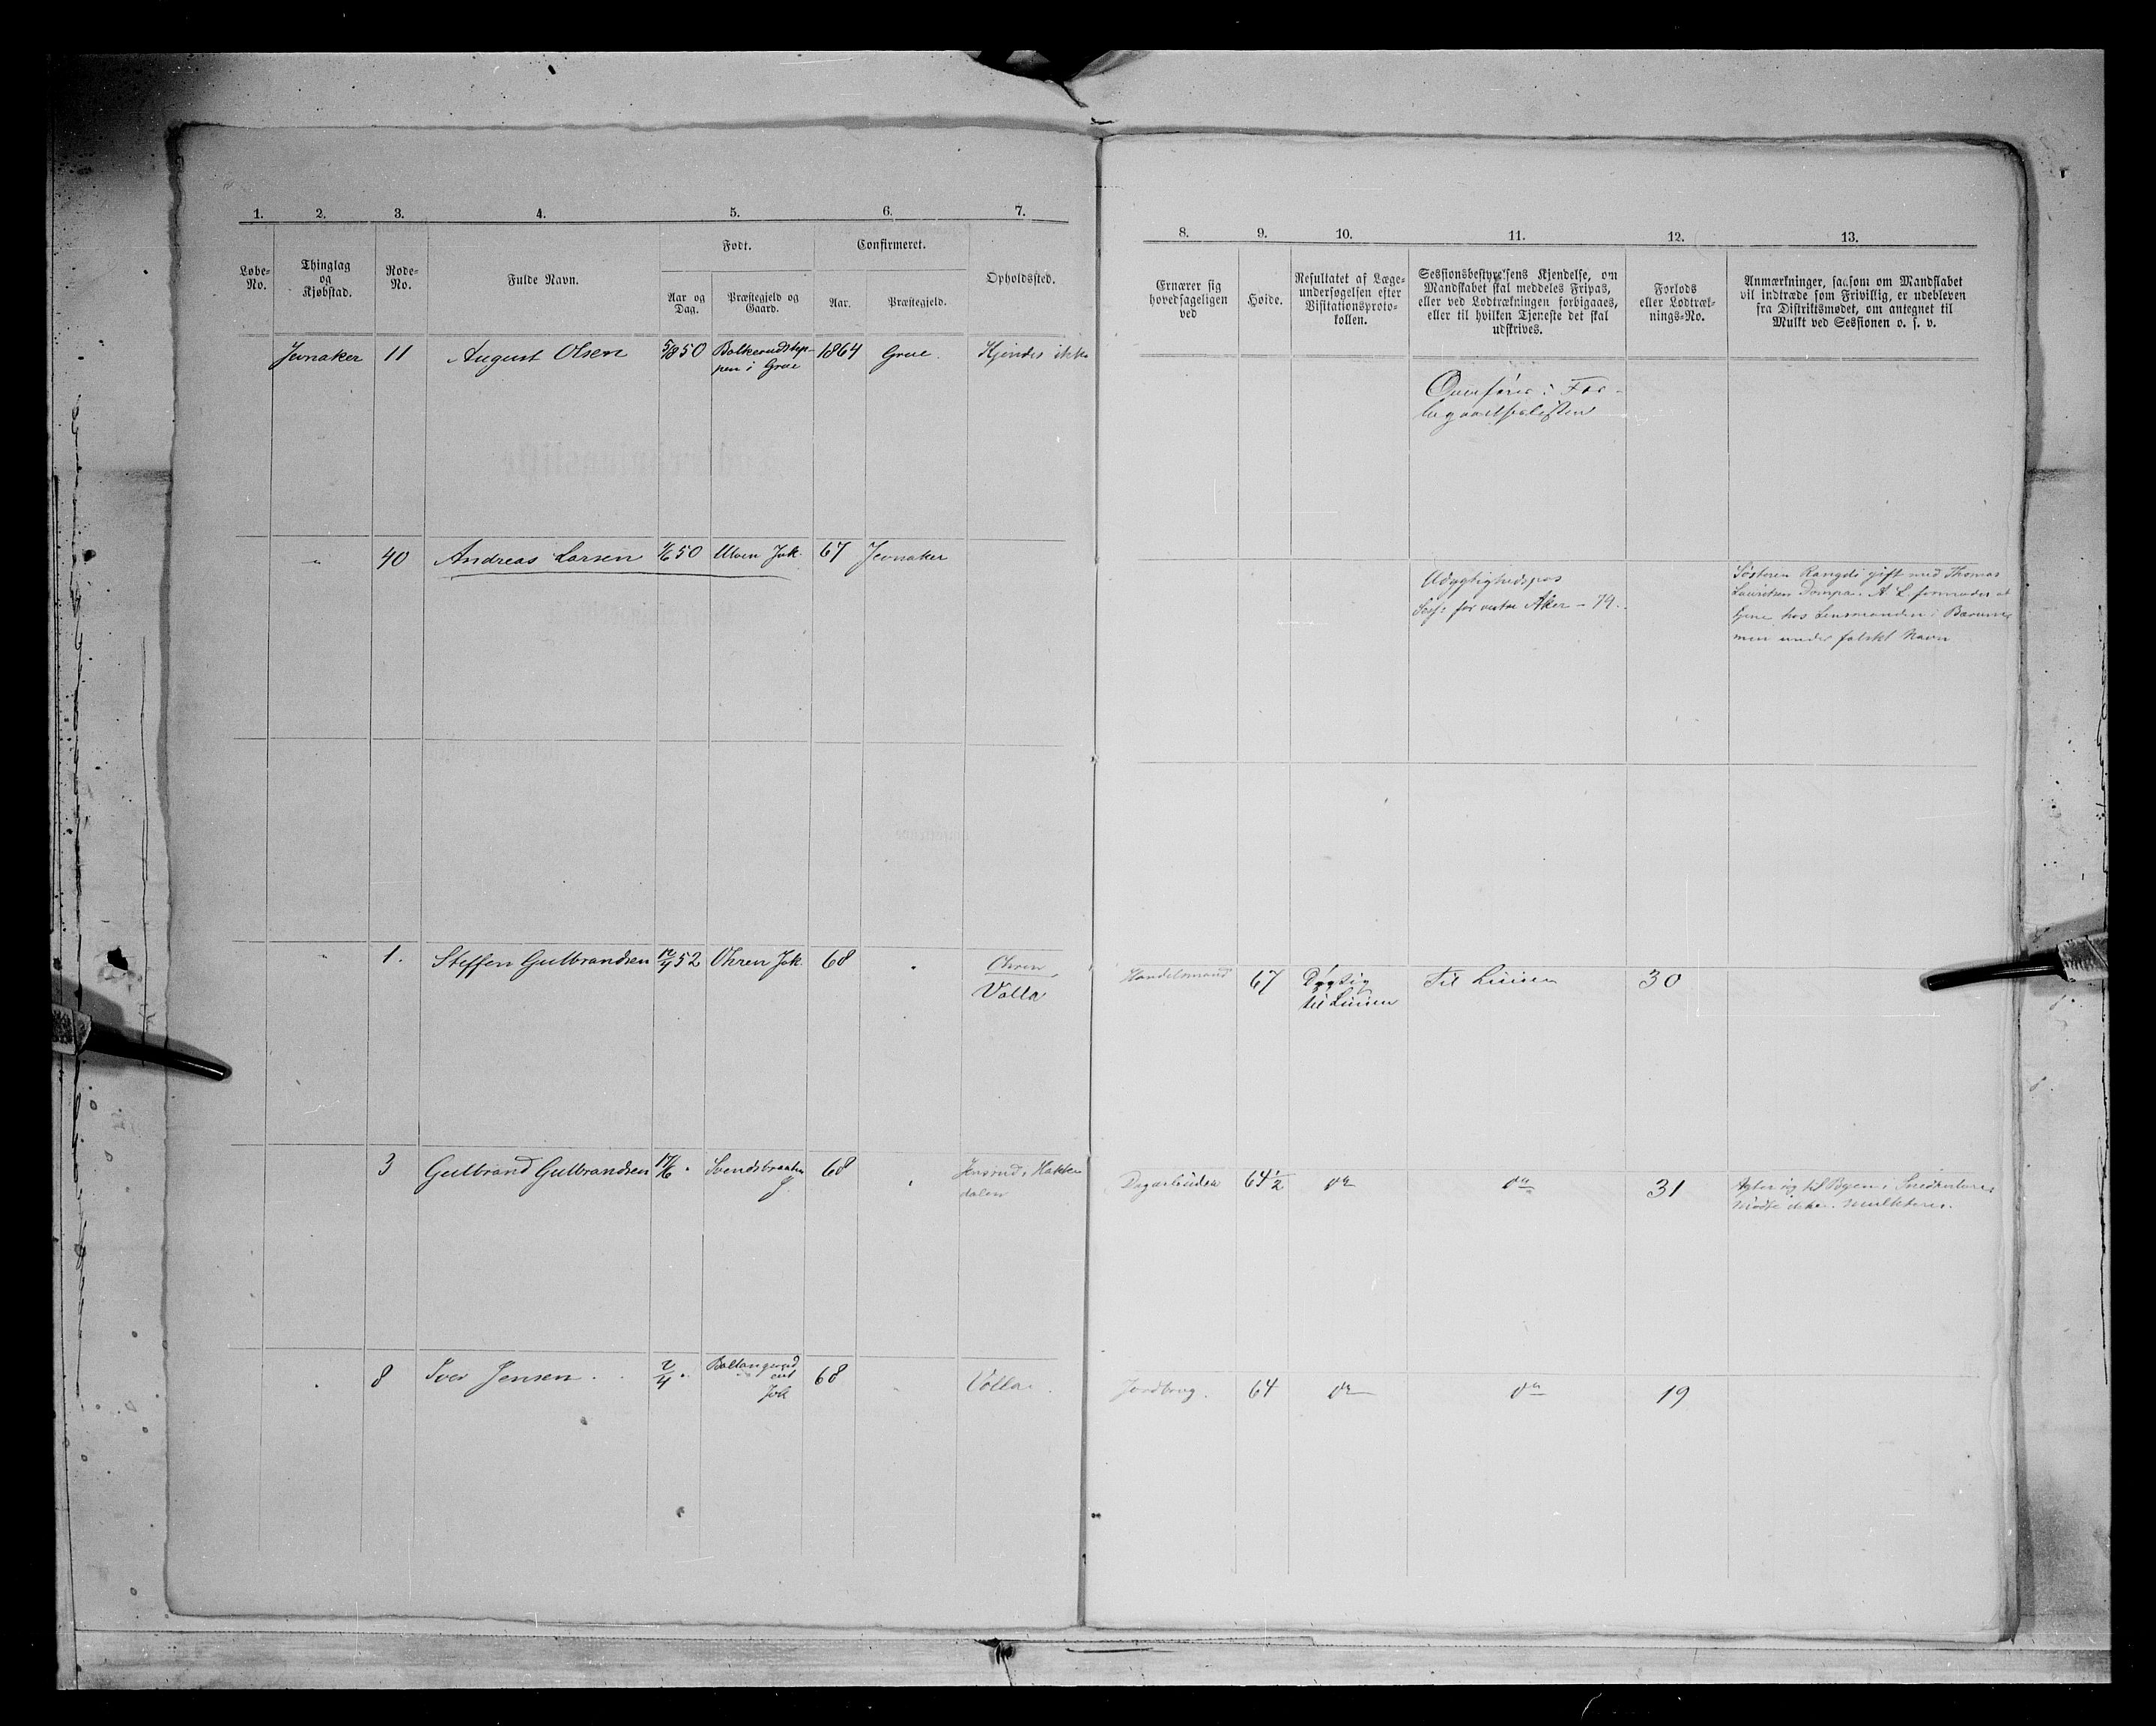 1. 2. 3. 4. 5. 6. 7.
Løbe-No.
Thinglag og Kjøbstad.
Rode-No.
Fulde Navn.
Født.
Aar og Dag.
Præstegjeld og Gaard.
Confirmeret.
Aar.
Præstegjeld.
Opholdssted.
Jevnaker 11 August Olsen 5/8 50 Bolkerudstep- 1864 Grue. Kjendes ikke
pen i Grue
" 40 Andreas Larsen 50 Ulven Jvk. 67 Jevnaker
" 1. Steffen Gulbrandsen 52 Ohren Jvk. 68 " Ohren
Volla
3 Gulbrand Gulbrandsen 17/6 " Svendsbraaten 68 " Hakke
dalen
8 Iver Jensen. 2/4 " 68 " Volla.
Jvk
8. 9. 10. 11. 12. 13.
Ernærer sig hovedsageligen ved
Høide.
Resultatet af Læge-
undersøgelsen efter
Visitationsproto-
kollen.
Sessionsbestyrelsens Kjendelse, om
Mandskabet skal meddeles Fripas,
eller ved Lodtrækningen forbigaaes,
eller til hvilken Tjeneste det skal
udskrives.
Forlods
eller Lodtræk-
nings-No.
Anmærkninger, saasom om Mandskabet
vil indtræde som Frivillig, er udebleven
fra Distriktsmødet, om antegnet til
Mulkt ved Sessionen o. s. v.
Overføres i For-
begaaelseslisten
Udygtighedspas
Sess: for vestre Aker - 74.
Søsteren Rangdi gift med Thomas
Lauritsen Dompa. A. L. formodes at
tjene hos Lensmanden i Bærum
men under falskt Navn
Handelsmand 67 Dygtig Til Linien 30
til Linien
Dagarbeider 64 1/2 do do 31 Agter sig til Byen i Snedkerlære
Mødte ikke. Mulkteres.
Jordbrug. 64 do do 19